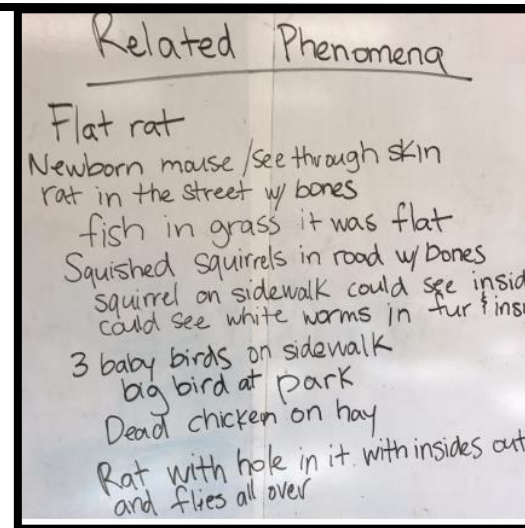 Related Phenomena
Flat rat
Newborn mouse/see through skin
rat in the street w/ bones
fish in grass it was flat
Squished squirrels in road w/ bones
squirrel on sidewalk could see insid
could see white worms in fur & insi
3 baby birds on sidewalk
big bird at park
Dead chicken on hay
Rat with hole in it. with insides out
and flies all over